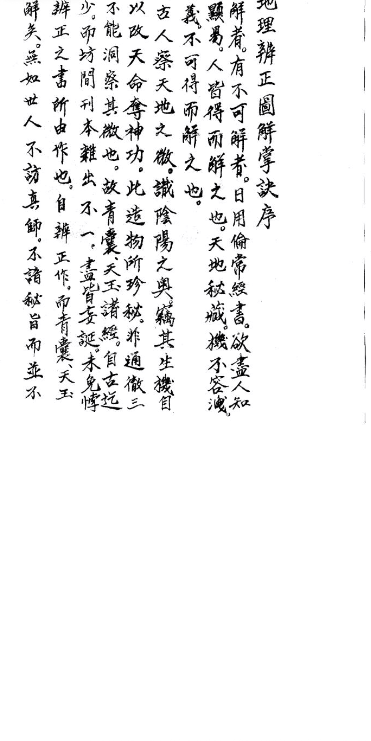 地理辨正圖解掌訣序
解者。有不可解者。日用倫常經書。欲盡人知
顯易。人皆得而解之也。天地秘藏。機不容洩。
義。不可得而解之也。
古人察天地之微。識陰陽之奧。竊其生機自
以改天命奪神功。此造物所珍秘。非通徹三
不能洞察其微也。故青囊、天玉諸經。自古迄
少。而坊間刊本雜出不一。盡皆妄誕。未免悖
辨正之書所由作也。自辨正作。而青囊、天玉
解矣。無如世人不訪真師。不諳秘旨而並不